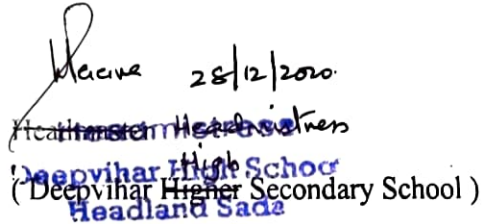 28/12/2020.
Headmistress
High
Deepvihar High School
( Deepvihar Higher Secondary School )
Headland Sada